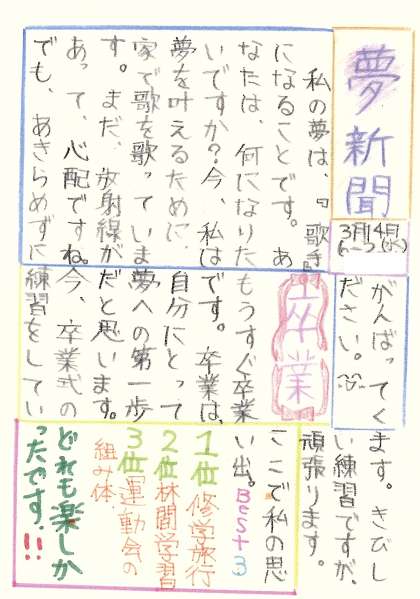 夢新聞
3月14日(水)
私の夢は、『歌手』
になることです。あ
なたは、何になりた
いですか?今、私は
夢を叶えるために、
家で歌を歌っていま
す。まだ、放射線が
あって、心配ですね。
でも、あきらめずに
がんばってく
ださい。
卒業
もうすぐ卒業
です。卒業は、
自分にとって
夢への第一歩
だと思います。
今、卒業式の
練習をしてい
ます。きびし
い練習ですが、
頑張ります。
ここで私の思
い出。Best3
1位 修学旅行
2位 林間学習
3位「運動会の
組み体
どれも楽しか
ったです。!!